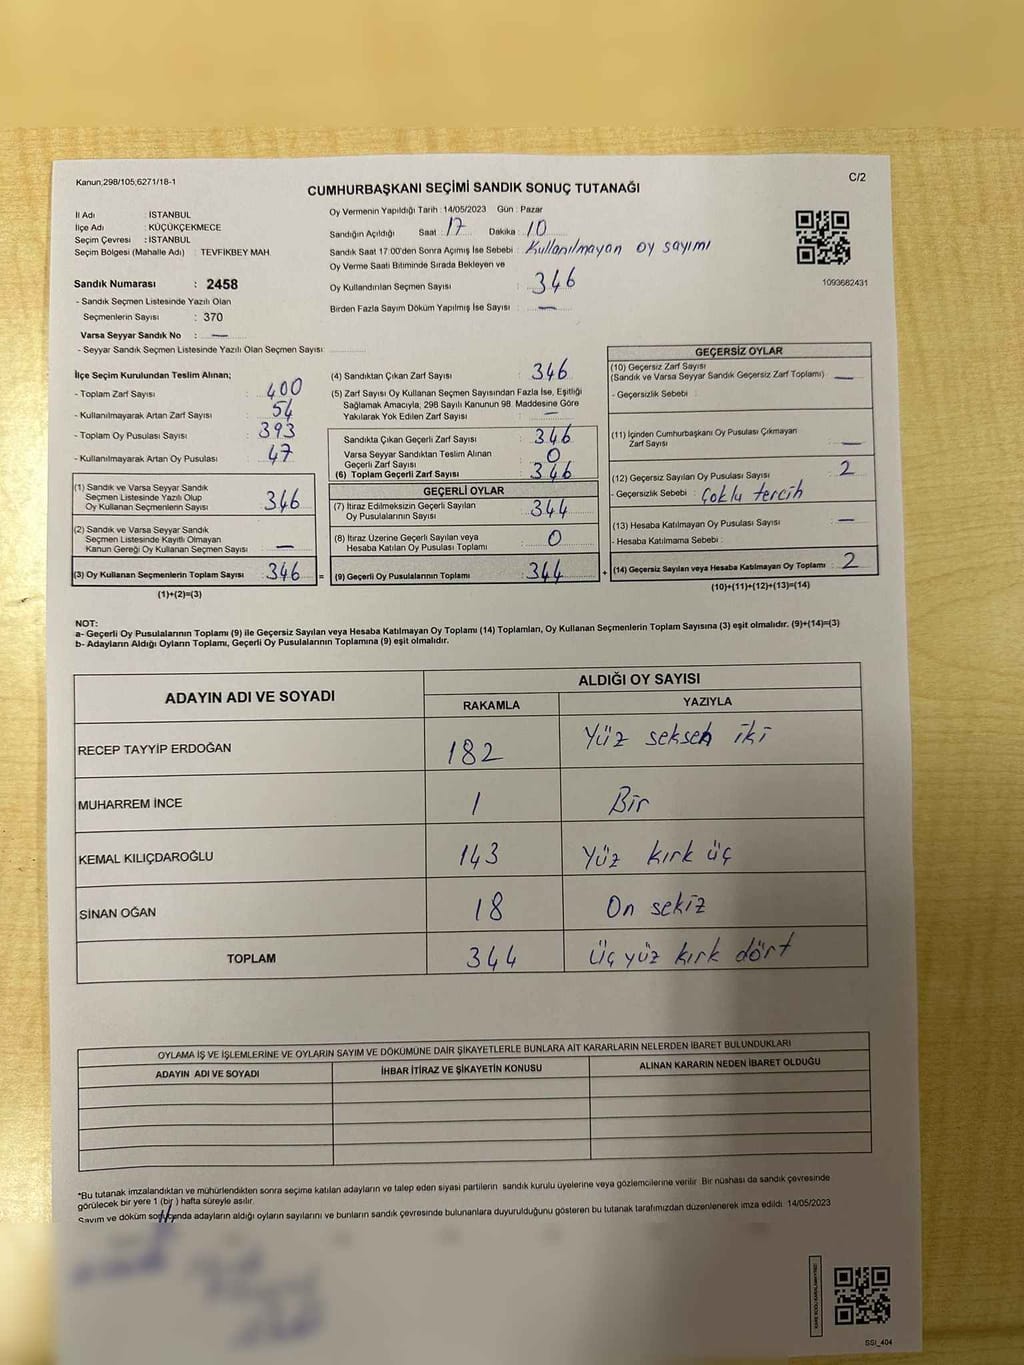 Kanun;298/105;6271/18-1
C/2
CUMHURBAŞKANI SEÇİMİ SANDIK SONUÇ TUTANAĞI
İl Adı : İSTANBUL
İlçe Adı : KÜÇÜKÇEKMECE
Seçim Çevresi : İSTANBUL
Seçim Bölgesi (Mahalle Adı) : TEVFİKBEY MAH.
Sandık Numarası : 2458
- Sandık Seçmen Listesinde Yazılı Olan
Seçmenlerin Sayısı : 370
Varsa Seyyar Sandık No : —
- Seyyar Sandık Seçmen Listesinde Yazılı Olan Seçmen Sayısı:
Oy Vermenin Yapıldığı Tarih : 14/05/2023 Gün : Pazar
Sandığın Açıldığı Saat : 17 Dakika : 10
Sandık Saat 17:00'den Sonra Açımış İse Sebebi : Kullanılmayan oy sayımı
Oy Verme Saati Bitiminde Sırada Bekleyen ve
Oy Kullandırılan Seçmen Sayısı : 346
Birden Fazla Sayım Döküm Yapılmış İse Sayısı : —
1093682431
İlçe Seçim Kurulundan Teslim Alınan;
- Toplam Zarf Sayısı : 400
- Kullanılmayarak Artan Zarf Sayısı : 54
- Toplam Oy Pusulası Sayısı : 393
- Kullanılmayarak Artan Oy Pusulası : 47
(1) Sandık ve Varsa Seyyar Sandık
Seçmen Listesinde Yazılı Olup
Oy Kullanan Seçmenlerin Sayısı 346
(2) Sandık ve Varsa Seyyar Sandık
Seçmen Listesinde Kayıtlı Olmayan
Kanun Gereği Oy Kullanan Seçmen Sayısı —
(3) Oy Kullanan Seçmenlerin Toplam Sayısı 346 =
(1)+(2)=(3)
(4) Sandıktan Çıkan Zarf Sayısı : 346
(5) Zarf Sayısı Oy Kullanan Seçmen Sayısından Fazla İse, Eşitliği
Sağlamak Amacıyla, 298 Sayılı Kanunun 98. Maddesine Göre
Yakılarak Yok Edilen Zarf Sayısı : —
Sandıkta Çıkan Geçerli Zarf Sayısı : 346
Varsa Seyyar Sandıktan Teslim Alınan
Geçerli Zarf Sayısı : 0
(6) Toplam Geçerli Zarf Sayısı : 346
GEÇERLİ OYLAR
(7) İtiraz Edilmeksizin Geçerli Sayılan
Oy Pusulalarının Sayısı : 344
(8) İtiraz Üzerine Geçerli Sayılan veya
Hesaba Katılan Oy Pusulası Toplamı : 0
(9) Geçerli Oy Pusulalarının Toplamı : 344 +
GEÇERSİZ OYLAR
(10) Geçersiz Zarf Sayısı
(Sandık ve Varsa Seyyar Sandık Geçersiz Zarf Toplamı) : —
- Geçersizlik Sebebi :
(11) İçinden Cumhurbaşkanı Oy Pusulası Çıkmayan
Zarf Sayısı : —
(12) Geçersiz Sayılan Oy Pusulası Sayısı : 2
- Geçersizlik Sebebi : Çoklu tercih
(13) Hesaba Katılmayan Oy Pusulası Sayısı : —
- Hesaba Katılmama Sebebi :
(14) Geçersiz Sayılan veya Hesaba Katılmayan Oy Toplamı : 2
(10)+(11)+(12)+(13)=(14)
NOT:
a- Geçerli Oy Pusulalarının Toplamı (9) ile Geçersiz Sayılan veya Hesaba Katılmayan Oy Toplamı (14) Toplamları, Oy Kullanan Seçmenlerin Toplam Sayısına (3) eşit olmalıdır. (9)+(14)=(3)
b- Adayların Aldığı Oyların Toplamı, Geçerli Oy Pusulalarının Toplamına (9) eşit olmalıdır.
ADAYIN ADI VE SOYADI ALDIĞI OY SAYISI
RAKAMLA YAZIYLA
RECEP TAYYİP ERDOĞAN 182 Yüz seksen iki
MUHARREM İNCE 1 Bir
KEMAL KILIÇDAROĞLU 143 Yüz kırk üç
SİNAN OĞAN 18 On sekiz
TOPLAM 344 Üç yüz kırk dört
OYLAMA İŞ VE İŞLEMLERİNE VE OYLARIN SAYIM VE DÖKÜMÜNE DAİR ŞİKAYETLERLE BUNLARA AİT KARARLARIN NELERDEN İBARET BULUNDUKLARI
ADAYIN ADI VE SOYADI İHBAR İTİRAZ VE ŞİKAYETİN KONUSU ALINAN KARARIN NEDEN İBARET OLDUĞU
*Bu tutanak imzalandıktan ve mühürlendikten sonra seçime katılan adayların ve talep eden siyasi partilerin sandık kurulu üyelerine veya gözlemcilerine verilir. Bir nüshası da sandık çevresinde
görülecek bir yere 1 (bir ) hafta süreyle asılır.
Sayım ve döküm sonucunda adayların aldığı oyların sayılarını ve bunların sandık çevresinde bulunanlara duyurulduğunu gösteren bu tutanak tarafımızdan düzenlenerek imza edildi. 14/05/2023
SSI_404